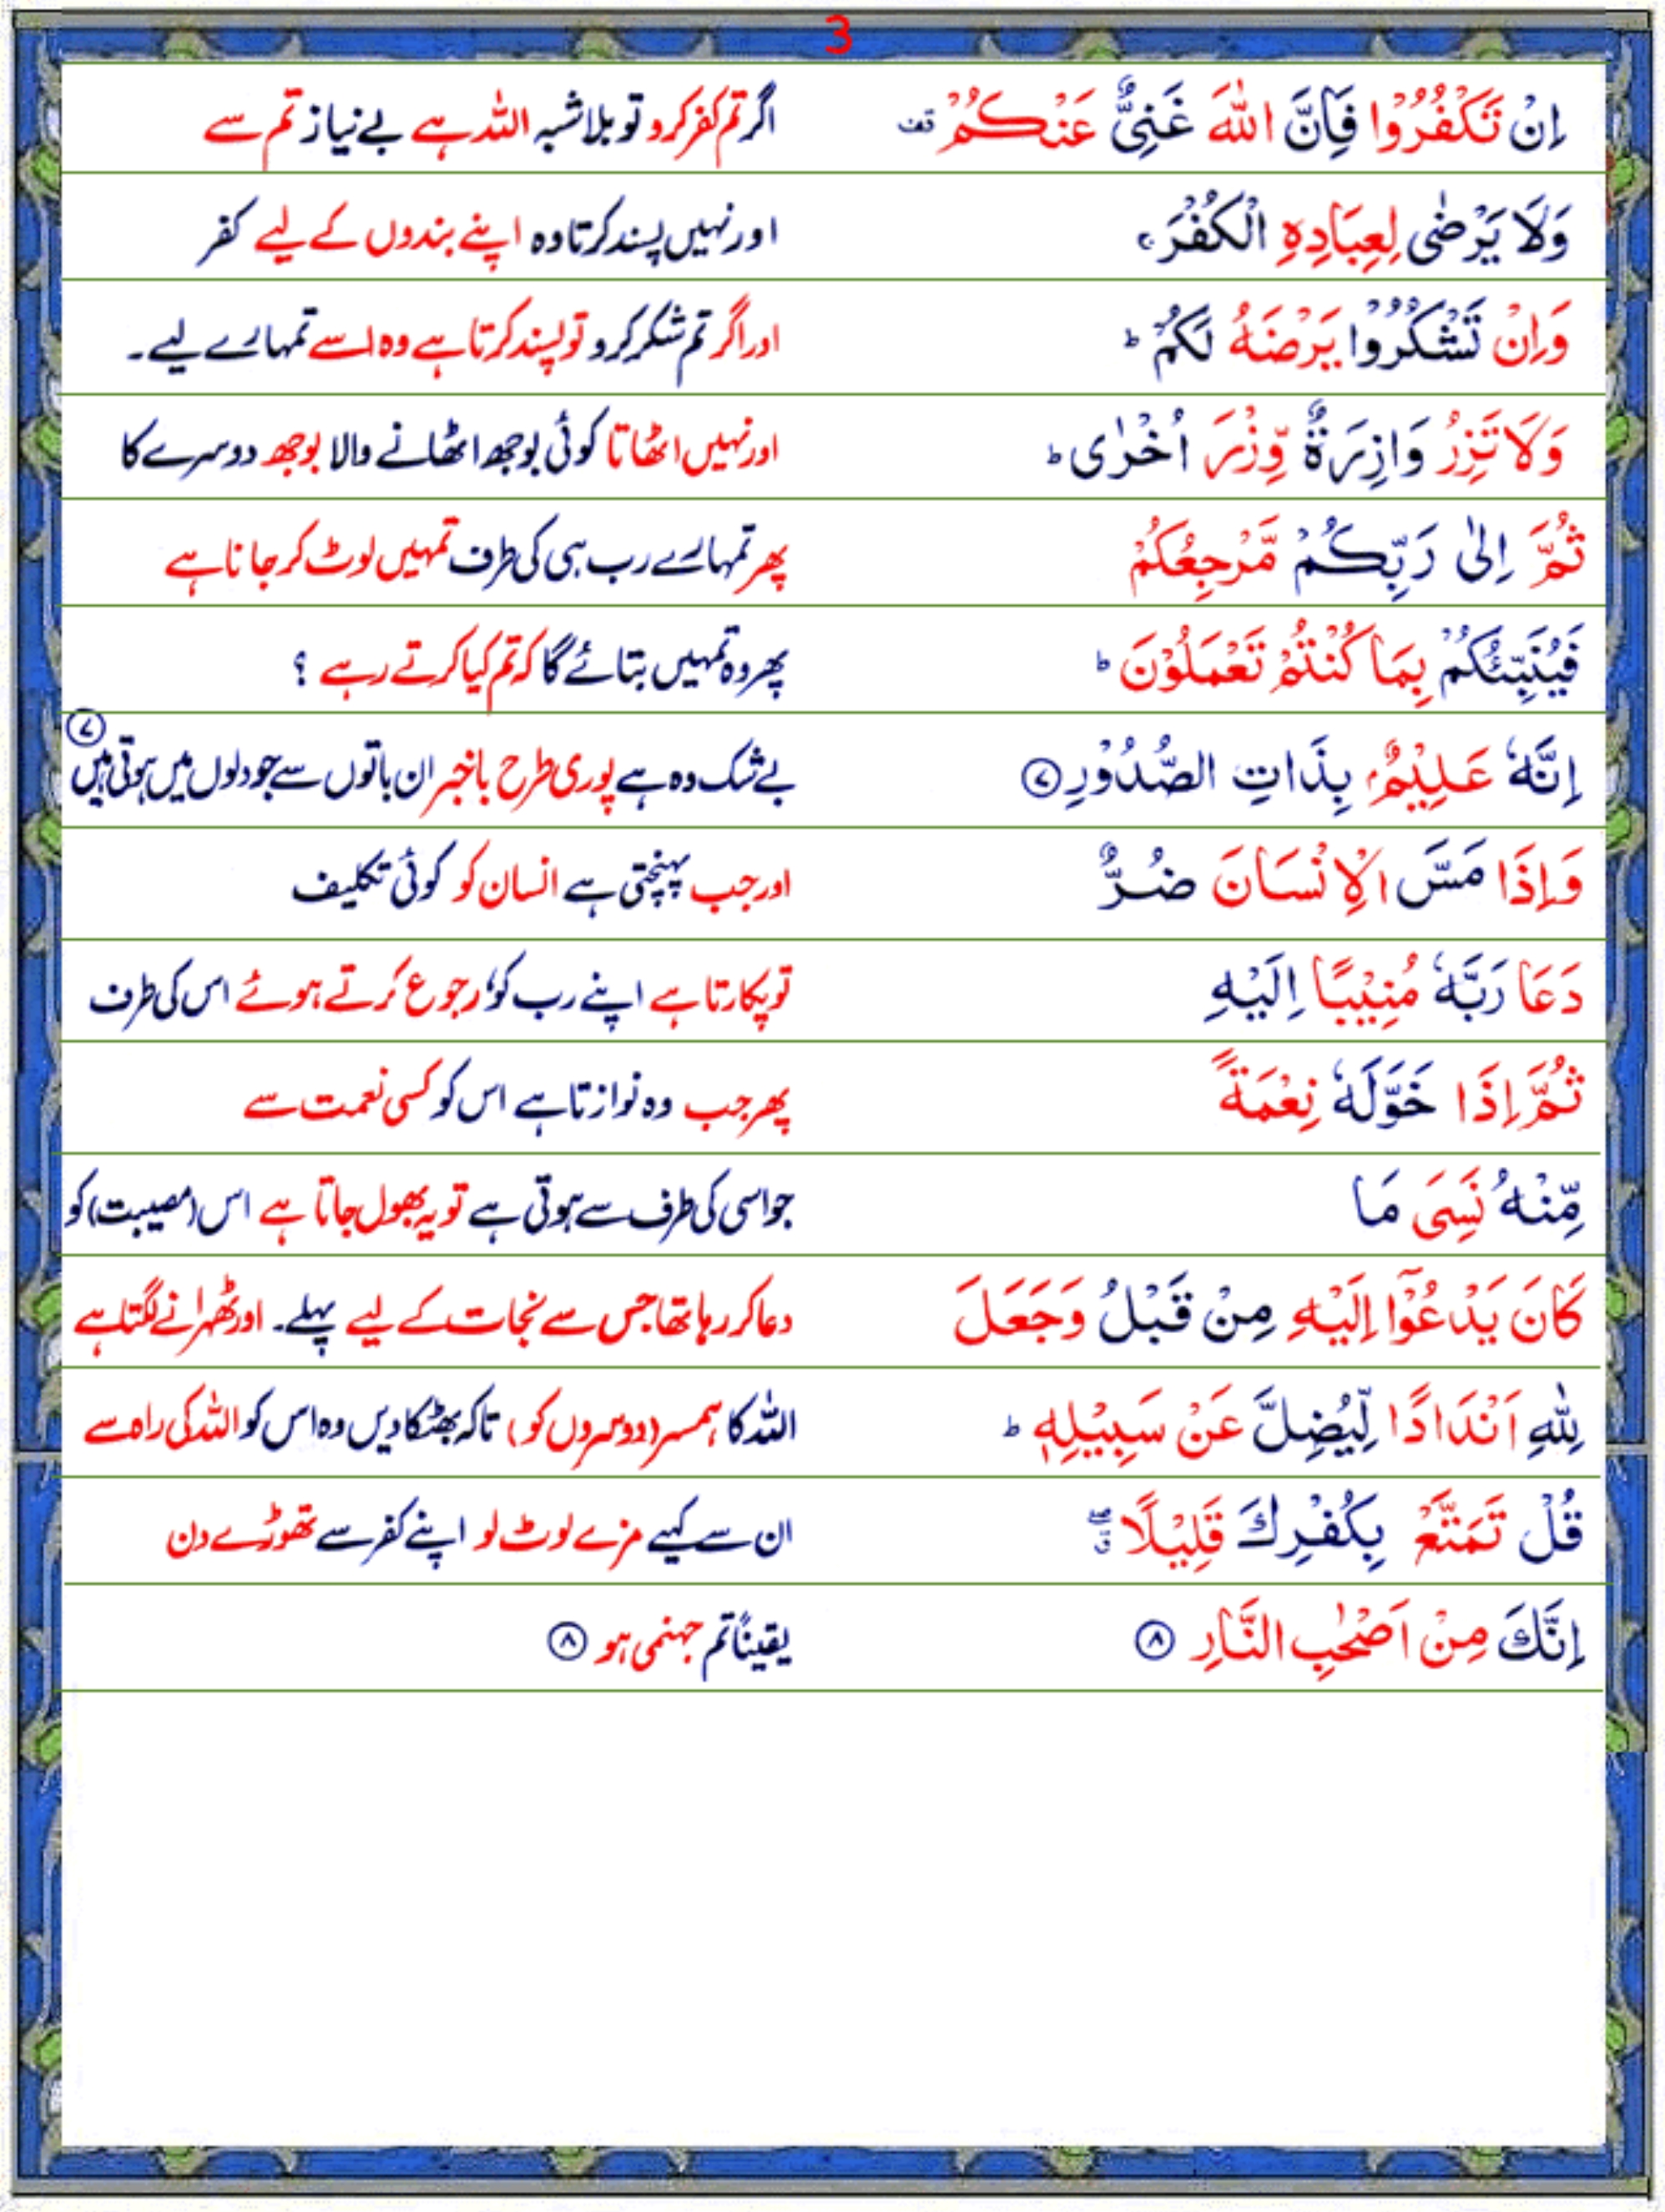 3
اِنْ تَكْفُرُوْا فَاِنَّ اللّٰهَ غَنِيٌّ عَنْكُمْ ۫ اگر تم کفر کرو تو بلاشبہ اللہ ہے بے نیاز تم سے
وَلَا يَرْضٰى لِعِبَادِهِ الْكُفْرَ ۚ اور نہیں پسند کرتا وہ اپنے بندوں کے لیے کفر
وَاِنْ تَشْكُرُوْا يَرْضَهُ لَكُمْ ؕ اور اگر تم شکر کرو تو پسند کرتا ہے وہ اسے تمہارے لیے۔
وَلَا تَزِرُ وَازِرَةٌ وِّزْرَ اُخْرٰى ؕ اور نہیں اٹھاتا کوئی بوجھ اٹھانے والا بوجھ دوسرے کا
ثُمَّ اِلٰى رَبِّكُمْ مَّرْجِعُكُمْ پھر تمہارے رب ہی کی طرف تمہیں لوٹ کر جانا ہے
فَيُنَبِّئُكُمْ بِمَا كُنْتُمْ تَعْمَلُوْنَ ؕ پھر وہ تمہیں بتائے گا کہ تم کیا کرتے رہے ؟
اِنَّهٗ عَلِيْمٌۢ بِذَاتِ الصُّدُوْرِ ۷ بے شک وہ ہے پوری طرح باخبر ان باتوں سے جو دلوں میں ہوتی ہیں ۷
وَاِذَا مَسَّ الْاِنْسَانَ ضُرٌّ اور جب پہنچتی ہے انسان کو کوئی تکلیف
دَعَا رَبَّهٗ مُنِيْبًا اِلَيْهِ تو پکارتا ہے اپنے رب کو، رجوع کرتے ہوئے اس کی طرف
ثُمَّ اِذَا خَوَّلَهٗ نِعْمَةً پھر جب وہ نوازتا ہے اس کو کسی نعمت سے
مِّنْهُ نَسِيَ مَا جو اسی کی طرف سے ہوتی ہے تو یہ بھول جاتا ہے اس (مصیبت) کو
كَانَ يَدْعُوْۤا اِلَيْهِ مِنْ قَبْلُ وَجَعَلَ دعا کر رہا تھا جس سے نجات کے لیے پہلے۔ اور ٹھہرانے لگتا ہے
لِلّٰهِ اَنْدَادًا لِّيُضِلَّ عَنْ سَبِيْلِهٖ ؕ اللہ کا ہمسر (دوسروں کو) تاکہ بھٹکا دیں وہ اس کو اللہ کی راہ سے
قُلْ تَمَتَّعْ بِكُفْرِكَ قَلِيْلًا ۖ ان سے کہیے مزے لوٹ لو اپنے کفر سے تھوڑے دن
اِنَّكَ مِنْ اَصْحٰبِ النَّارِ ۸ یقیناً تم جہنمی ہو ۸